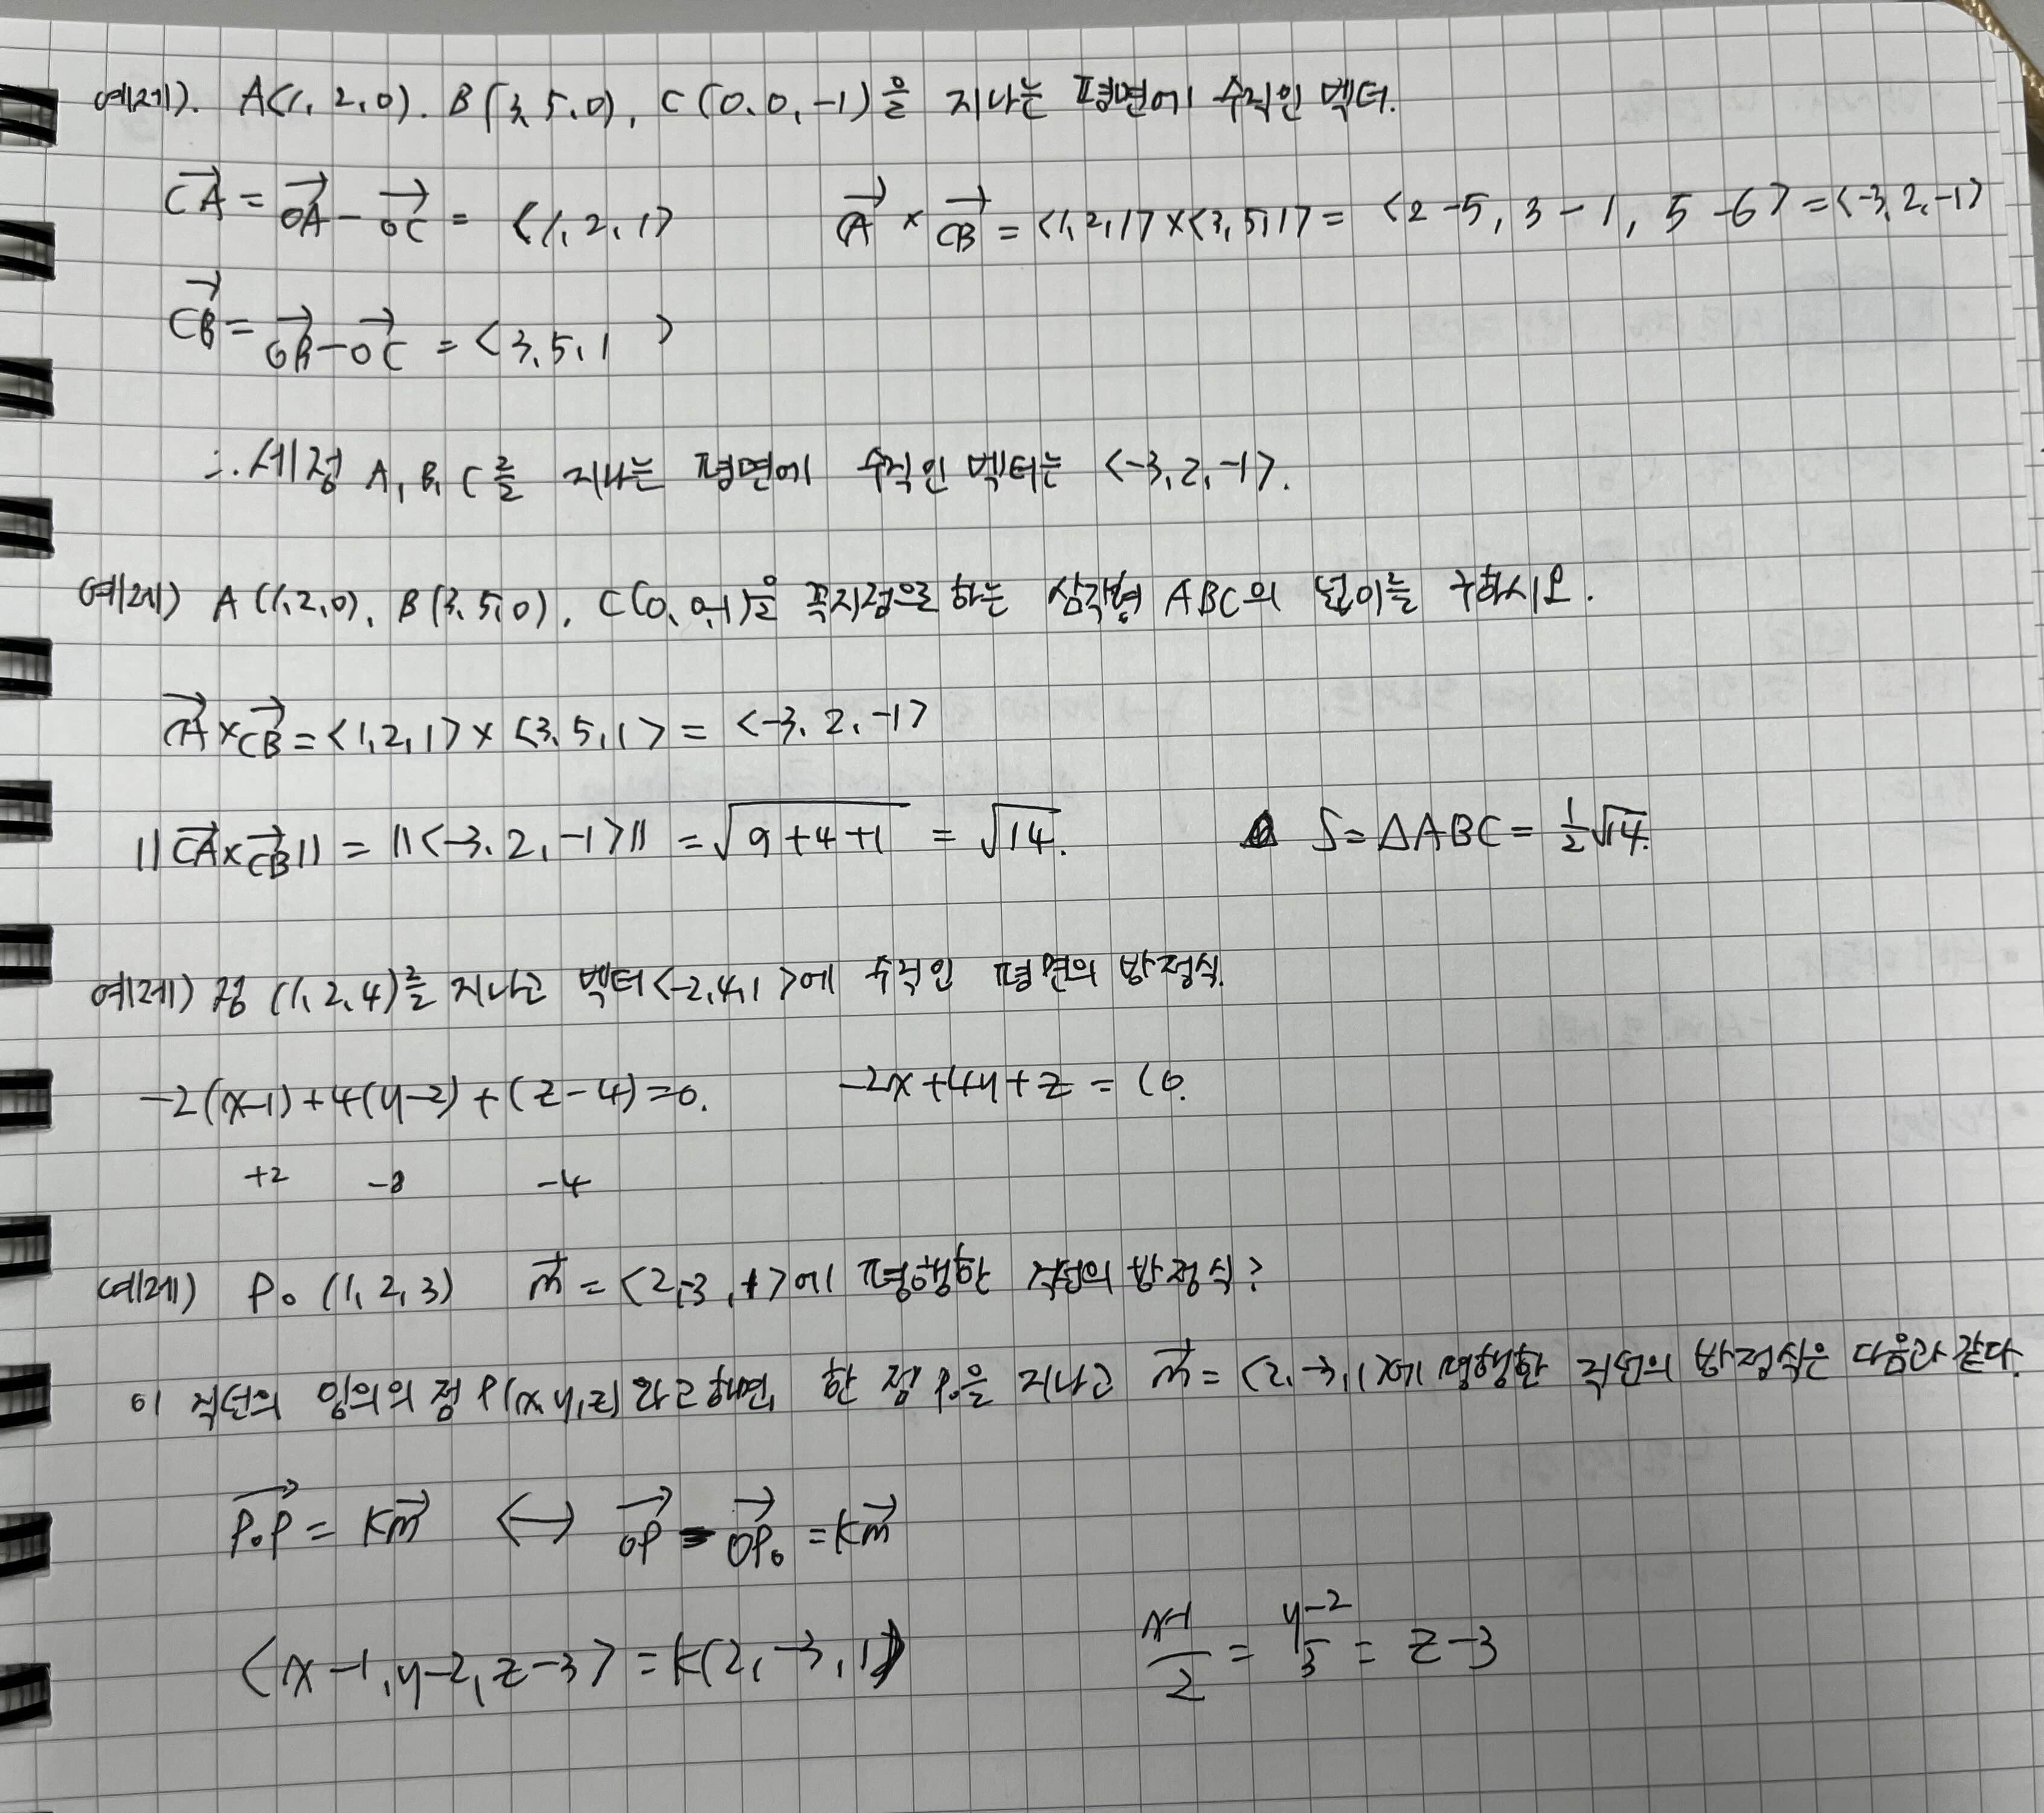 예제). A(1, 2, 0). B(3, 5, 0), C(0, 0, -1)을 지나는 평면에 수직인 벡터.
CA = OA - OC = <1, 2, 1> CA × CB = <1, 2, 1> × <3, 5, 1> = <2-5, 3-1, 5-6> = <-3, 2, -1>
CB = OB - OC = <3, 5, 1>
∴ 세 점 A, B, C를 지나는 평면에 수직인 벡터는 <-3, 2, -1>.
예제) A(1, 2, 0), B(3, 5, 0), C(0, 0, -1)을 꼭지점으로 하는 삼각형 ABC의 넓이를 구하시오.
CA × CB = <1, 2, 1> × <3, 5, 1> = <-3, 2, -1>
||CA × CB|| = ||<-3, 2, -1>|| = √(9+4+1) = √14. S = △ABC = 1/2 √14.
예제) 점 (1, 2, 4)를 지나고 벡터 <-2, 4, 1>에 수직인 평면의 방정식.
-2(x-1) + 4(y-2) + (z-4) = 0. -2x + 4y + z = 10.
+2 -8 -4
예제) P₀ (1, 2, 3) m = <2, -3, 1>에 평행한 직선의 방정식?
이 직선의 임의의 점 P(x, y, z)라고 하면, 한 점 P₀을 지나고 m = <2, -3, 1>에 평행한 직선의 방정식은 다음과 같다.
P₀P = Km ↔ OP - OP₀ = Km
<x-1, y-2, z-3> = K<2, -3, 1> (x-1)/2 = (y-2)/3 = z-3